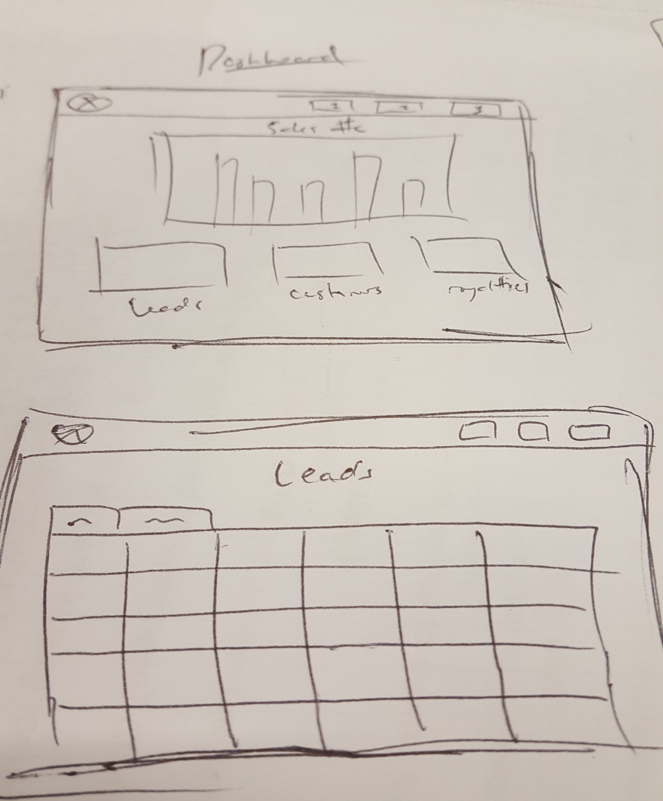 Dashboard
1 2 3
Sales etc
Leads
customers
royalties
Leads